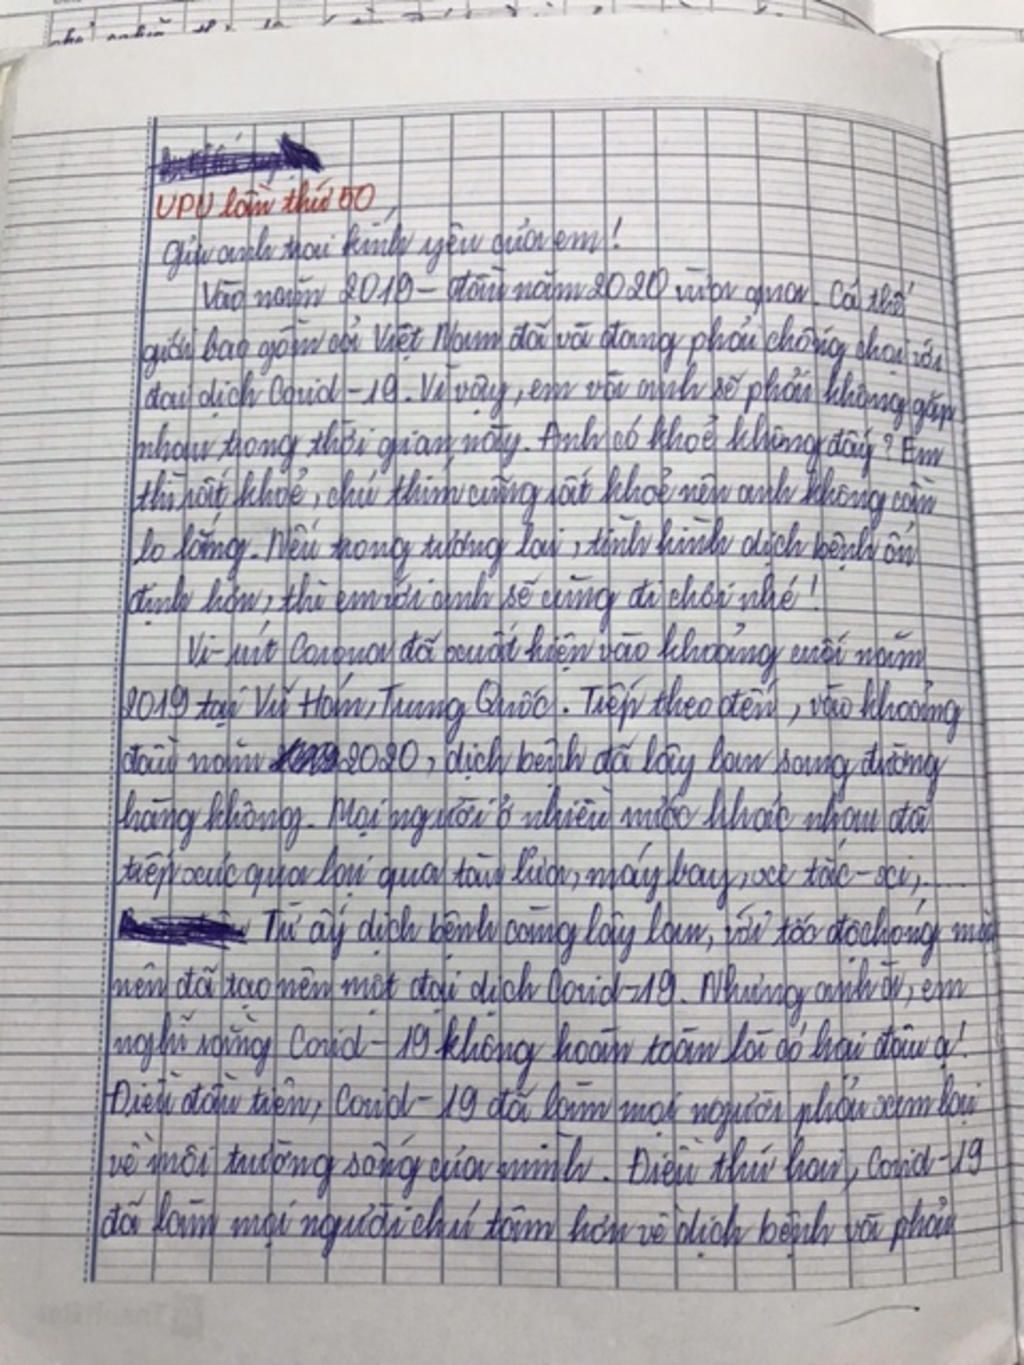 UPU lần thứ 50
Gửi anh trai kính yêu của em!
Vào năm 2019 - đầu năm 2020 vừa qua. Cả thế
giới bao gồm cả Việt Nam đã và đang phải chống chọi với
đại dịch Covid-19. Vì vậy, em và anh sẽ phải không gặp
nhau trong thời gian này. Anh có khoẻ không đấy? Em
thì rất khoẻ, chú thím cũng rất khoẻ nên anh không cần
lo lắng. Nếu trong tương lai, tình hình dịch bệnh ổn
định hơn, thì em với anh sẽ cùng đi chơi nhé!
Vi-rút Corona đã xuất hiện vào khoảng cuối năm
2019 tại Vũ Hán, Trung Quốc. Tiếp theo đến, vào khoảng
đầu năm 2020, dịch bệnh đã lây lan sang đường
hàng không. Mọi người ở nhiều nước khác nhau đã
tiếp xúc qua lại qua tàu lửa, máy bay, xe tắc-xi,....
Từ ấy dịch bệnh càng lây lan, với tốc độ chóng mặt
nên đã tạo nên một đại dịch Covid-19. Nhưng anh ơi, em
nghĩ rằng Covid-19 không hoàn toàn là có hại đâu ạ!
Điều đầu tiên, Covid-19 đã làm mọi người phải xem lại
về môi trường sống của mình. Điều thứ hai, Covid-19
đã làm mọi người chú tâm hơn về dịch bệnh và phải